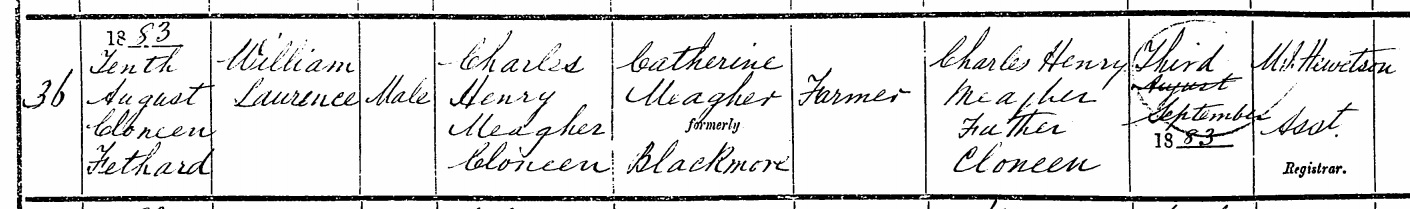 36
1883
Tenth
August
Cloneen
Fethard
William
Laurence
Male
Charles
Henry
Meagher
Cloneen
Catherine
Meagher
formerly
Blackmore
Farmer
Charles Henry
Meagher
Father
Cloneen
Third
August
September
1883
Hewetson
Asst.
Registrar.